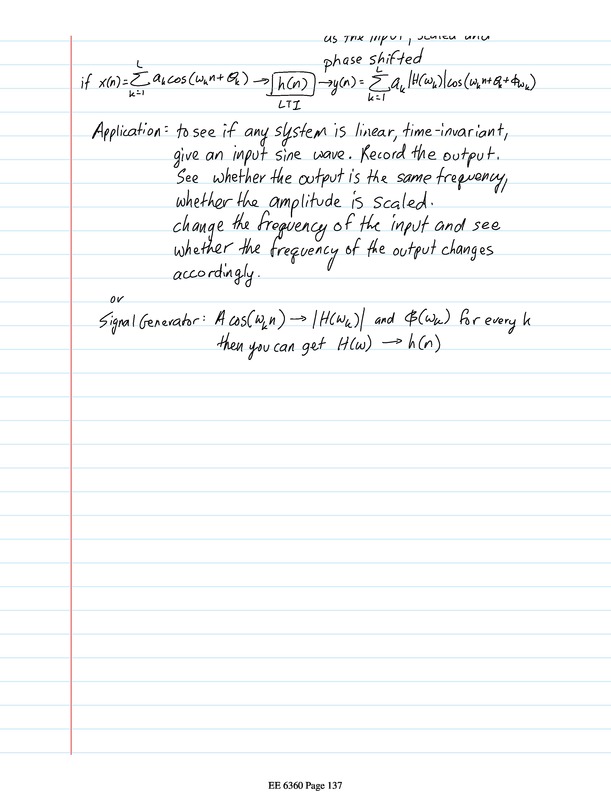 as the input, scaled and
phase shifted
if x(n) = Σ_{k=1}^{L} a_k cos(ω_k n + θ_k) → h(n) → y(n) = Σ_{k=1}^{L} a_k |H(ω_k)| cos(ω_k n + θ_k + ϕ_{ω_k})
LTI
Application: to see if any system is linear, time-invariant,
give an input sine wave. Record the output.
See whether the output is the same frequency,
whether the amplitude is scaled.
change the frequency of the input and see
whether the frequency of the output changes
accordingly.
or
Signal Generator: A cos(ω_k n) → |H(ω_k)| and ϕ(ω_k) for every k
then you can get H(ω) → h(n)
EE 6360 Page 137